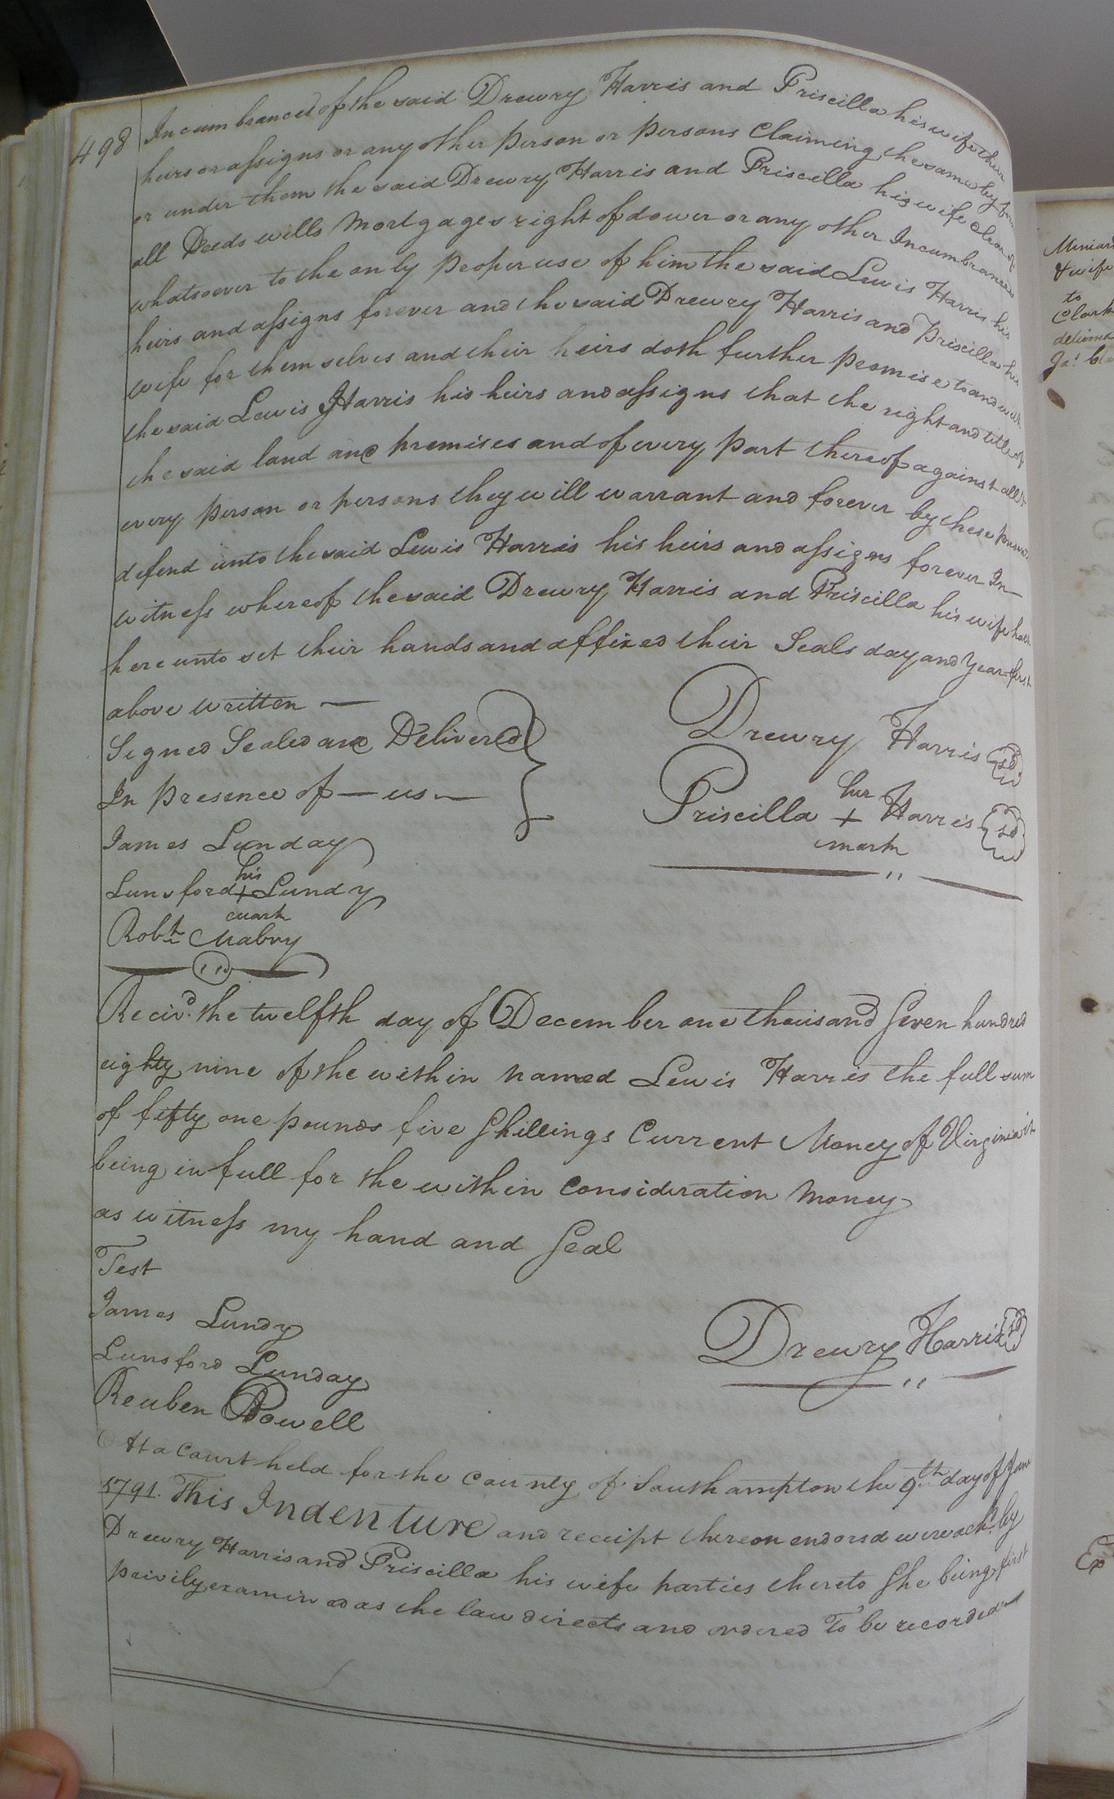 498
Incumbrances of the said Drewry Harris and Priscilla his wife their
heirs or assigns or any other person or persons Claiming the same by from
or under them the said Drewry Harris and Priscella his wife clear of
all Deeds wills Mortgages right of dower or any other Incumbrances
whatsoever to the only proper use of him the said Lewis Harris his
heirs and assigns forever and the said Drewry Harris and Priscilla his
wife for themselves and their heirs doth further promise to and with
the said Lewis Harris his heirs and assigns that the right and title of
the said land and premises and of every part thereof against all &
every person or persons they will warrant and forever by these
defend unto the said Lewis Harris his heirs and assigns forever In
witness whereof the said Drewry Harris and Priscilla his wife hath
hereunto set their hands and affixed their Seals day and Year first
above written —
Signed Sealed and Delivered
In presence of — us —
James Lunday
his
Lunsford + Lundy
mark
Robt Mabry
Drewry Harris Sd
her
Priscilla + Harris Sd
mark
Recivd. the twelfth day of December one thousand Seven hundred
eighty nine of the within named Lewis Harris the full sum
of fifty one pounds five Shillings Current Money of Virginia it
being in full for the within Consideration Money
as witness my hand and Seal
Test
James Lundy
Lunsford Lunday
Reuben Powell
Drewry Harris Sd
At a Court held for the County of Southampton the 9th day of June
1791. This Indenture and receipt thereon endorsd were ackd. by
Drewry Harris and Priscilla his wife parties thereto She being first
privily examined as the law directs and ordered To be recorded
& wife
to
Clark
Ex